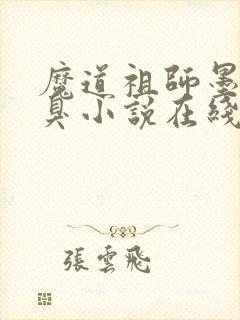 魔道祖師墨
臭小說在綫
張雲飛